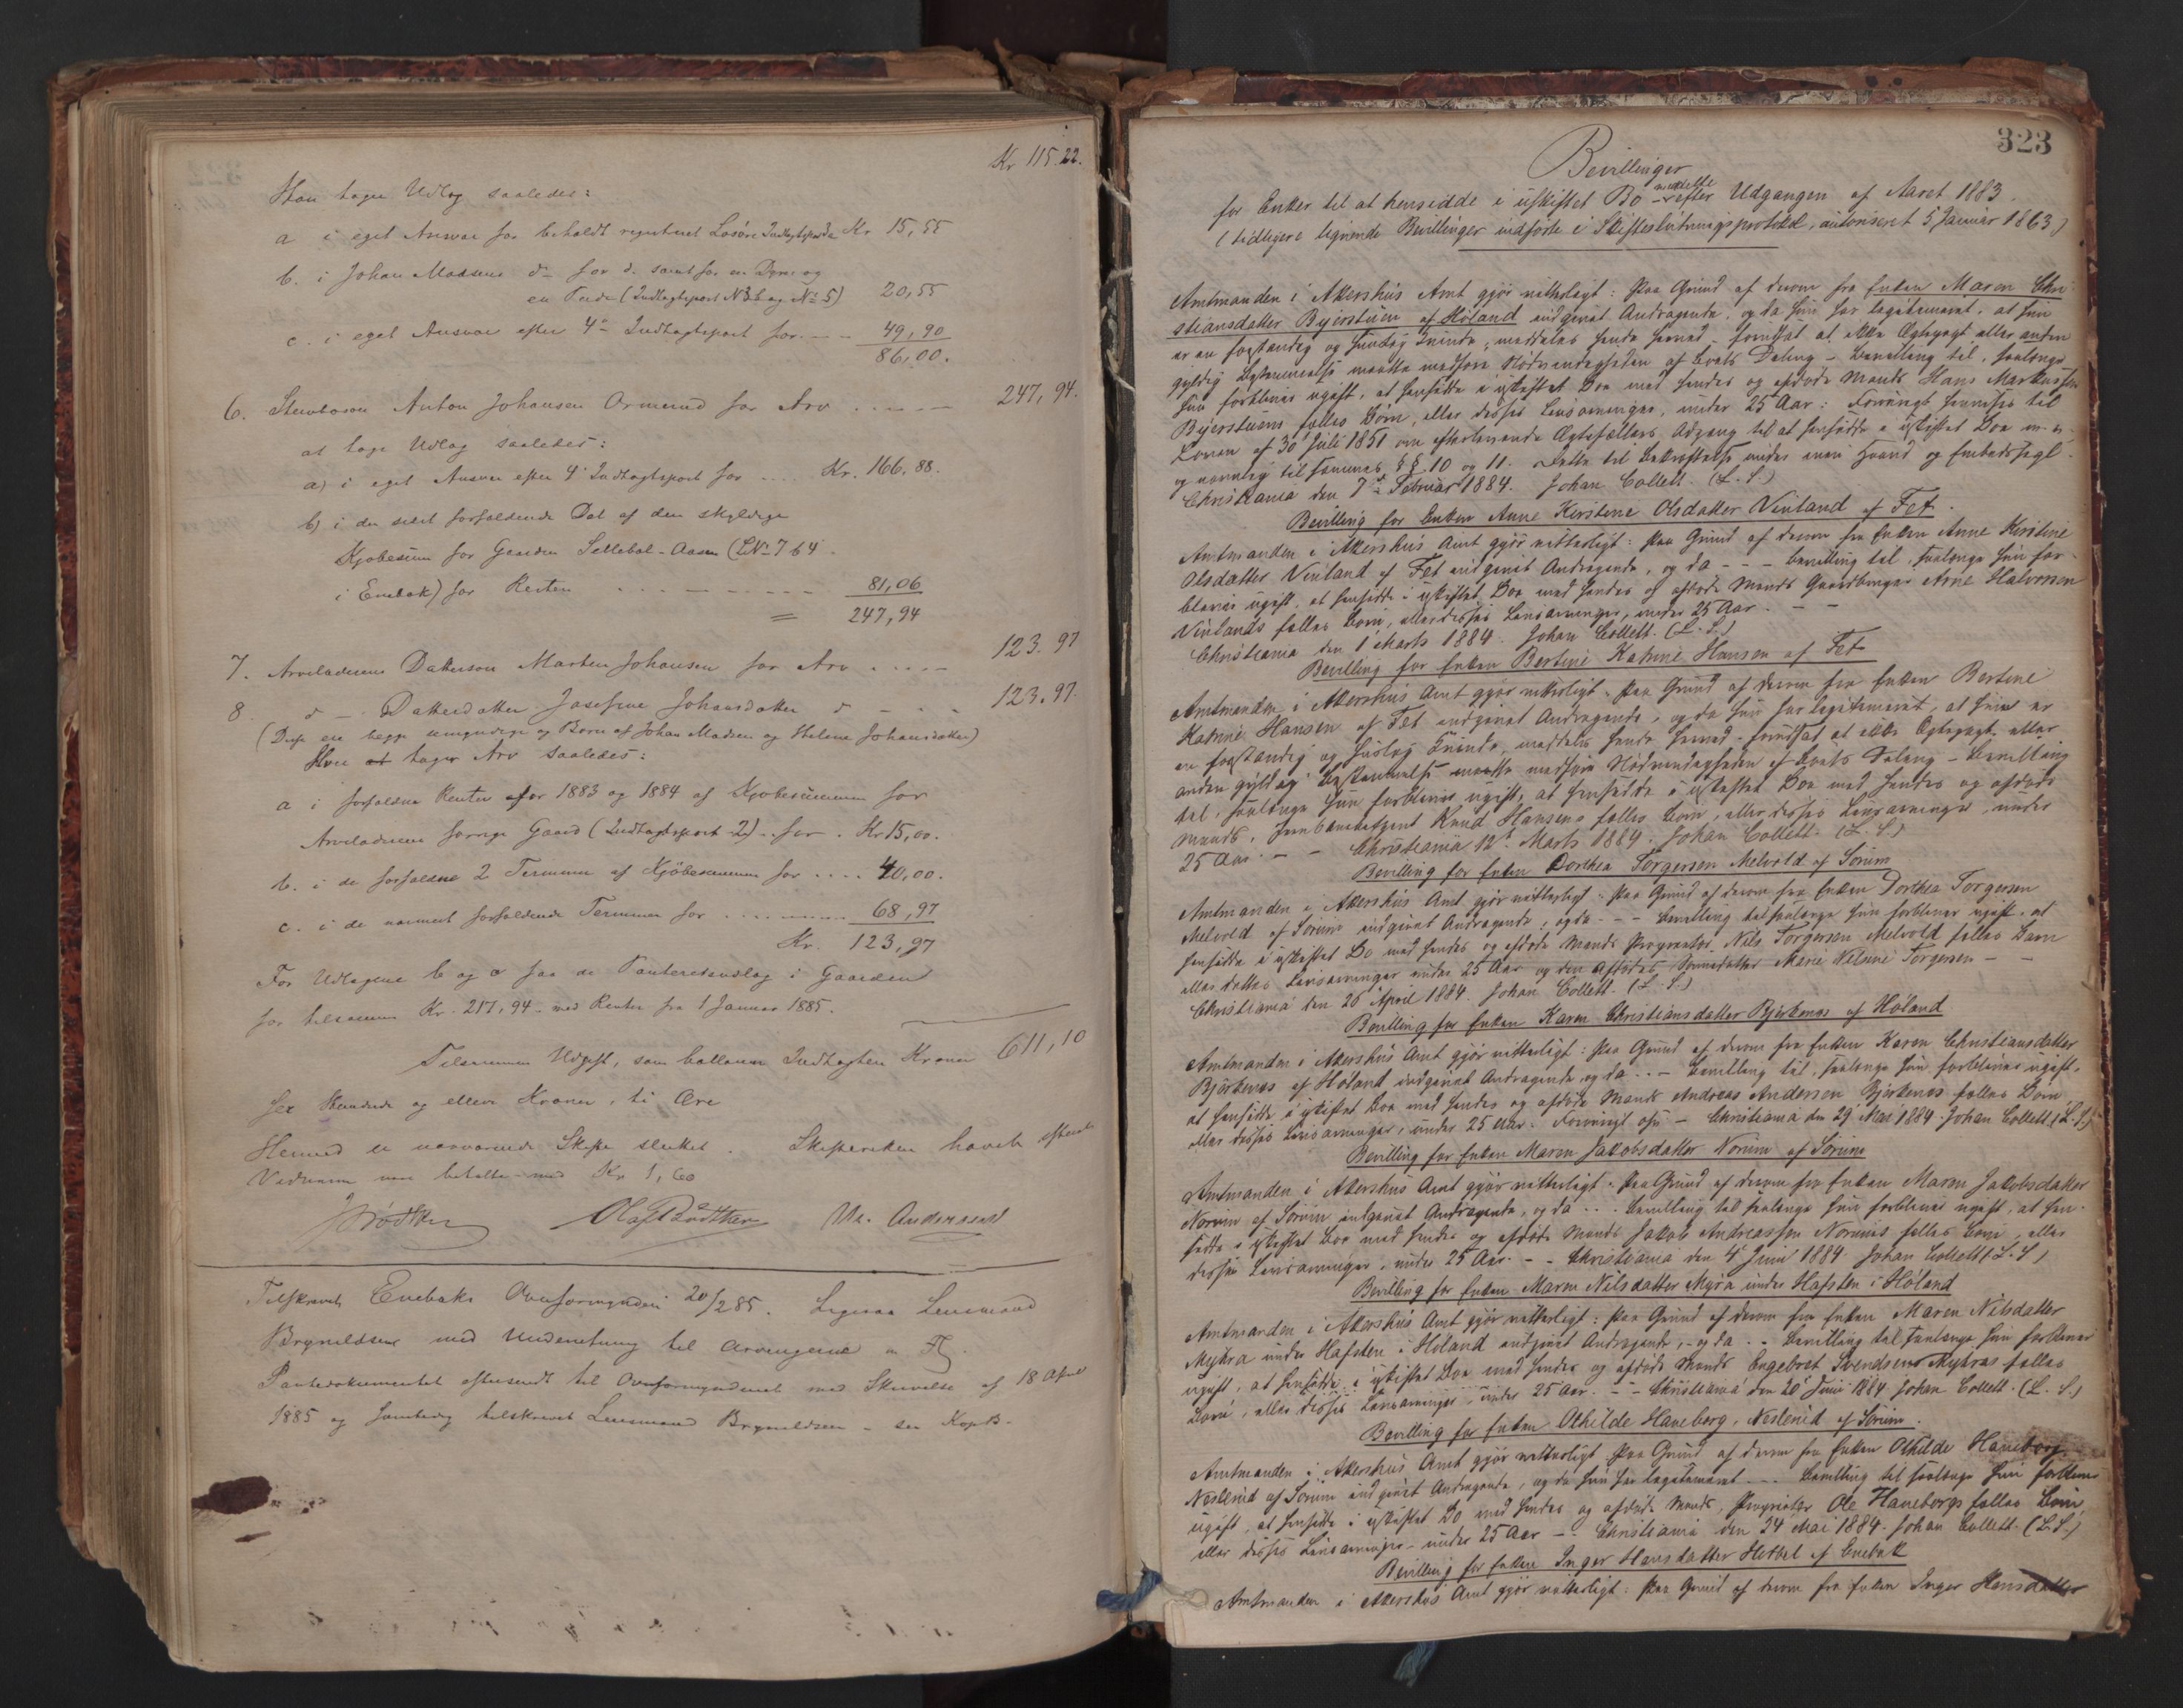 Kr 115.22.
Han tager Udlæg saaledes:
a i eget Ansvar for beholdt registreret Losöre Indtægtspost Kr 15,55
b. i Johan Madsens do for d. samt for en Dyne og
en Pude (Indtægtspost No 3 b og No 5) 20,55
c. i eget Ansvar efter 4de Indtægtspost for 49,90
86,00.
6. Stervboson Anton Johansen Ormerud for Arv 247,94.
at tage Udlæg saaledes:
a) i eget Ansvar efter 4 Indtægtspost for Kr. 166.88.
b) i den sidst forfaldende Del af den skyldige
Kjøbesum for Gaarden Sellebøl-Aasen (LNo 764
i Enebak) for Resten 81,06
= 247,94
7. Arveladerens Dattersøn Martin Johansen for Arv 123.97
8. d - Datterdatter Josefine Johansdatter d - 123.97.
(Disse ere begge umyndige og Børn af Johan Madsen og Helene Johansdatter)
Hver at tager Arv saaledes:
a i forfaldne Renter for 1883 og 1884 af Kjøbesummen for
Arveladerens forrige Gaard (Indtægtspost 2) for Kr 15,00.
b. i de forfaldne 2 Terminer af Kjöbesummen for 40,00.
c. i de nærmest forfaldende Terminer for 68,97
Kr. 123,97
For Udlægene b og c faa de Panteretsudlæg i Gaarden
for tilsammen Kr. 217,94 med Renter fra 1 Januar 1885.
Tilsammen Udgift, som ballancerer Indtægten Kroner 611,10
sex Hundrede og elleve Kroner, ti Öre
Hermed er nærværende Skifte sluttet. Skifteretten havde
Vidnerne betalte med Kr 1,60
Olaf Bødtker M. Andersen
Tilskrevet Enebaks Overformynderi 20/2 85. Ligesaa Lensmand
Brynildsen med Underretning til Arvingerne
Pantedokumentet oversendt til Overformynderiet med Skrivelse af 18 April
1885 og samtidig tilskrevet Lensmand Brynildsen - se Kop.B.
323
Bevillinger
for Enker til at hensidde i uskiftet Bo meddelte efter Udgangen af Aaret 1883.
(tidligere lignende Bevillinger indförte i Skifteslutningsprotokol, autoriseret 5 Januar 1863)
Amtmanden i Akershus Amt gjör vitterligt: Paa Grund af derom fra Enken Maren Chri-
stiansdatter Bjerstuen af Höland indgivet Andragende, og da hun har legitimeret, at hun
er en forstandig og huuslig Qvinde, meddeles hende herved - forudsat at ikke Ægtepagt eller anden
gyldig Bestemmelse maatte medføre Nödvendigheden af Boets Deling - Bevilling til, saalænge
hun forbliver ugift, at hensidde i uskiftet Boe med hendes og afdöde Mands Hans Markussen
Bjerstuens fælles Börn, eller disses Livsarvinger, under 25 Aar: Forövrigt henvises til
Loven af 30 Juli 1851 om efterlevende Ægtefællers Adgang til at hensidde i uskiftet Boe m. v.
og navnlig til sammes §§ 10 og 11. Dette til Bekræftelse under min Haand og Embedssegl.
Christiania den 7de Februar 1884. Johan Collett. (L. S.)
Bevilling for Enken Anne Kirstine Olsdatter Vinland af Fet.
Amtmanden i Akershus Amt gjör vitterligt: Paa Grund af derom fra Enken Anne Kirstine
Olsdatter Vinland af Fet indgivet Andragende, og da - - - Bevilling til, saalænge hun for-
bliver ugift, at hensidde i uskiftet Boe med hendes og afdöde Mands Gaardbruger Arne Halvorsen
Vinlands fælles Börn, eller disses Livsarvinger, under 25 Aar. - -
Christiania den 1 Marts 1884. Johan Collett. (L. S.)
Bevilling for Enken Bertine Katrine Hansen af Fet
Amtmanden i Akershus Amt gjör vitterligt: Paa Grund af derom fra Enken Bertine
Katrine Hansen af Fet indgivet Andragende, og da hun har legitimeret, at hun er
en forstandig og huslig Qvinde, meddeles hende herved - forudsat at ikke Ægtepagt eller
anden gyldig Bestemmelse maatte medføre Nödvendigheden af Boets Deling - Bevilling
til, saalænge hun forbliver ugift, at hensidde i uskiftet Boe med hendes og afdöde
Mands, Knud Hansens fælles Börn, eller disses Livsarvinger, under
25 Aar. - - Christiania 12te Marts 1884. Johan Collett. (L. S.)
Bevilling for Enken Dorthea Torgersen Melvold af Sörum
Amtmanden i Akershus Amt gjör vitterligt: Paa Grund af derom fra Enken Dorthea Torgersen
Melvold af Sörum indgivet Andragende, og da - - - Bevilling til saalænge hun forbliver ugift, at
hensidde i uskiftet Bo med hendes og afdöde Mands Proprietær Nils Torgersen Melvold fælles Barn
eller dettes Livsarvinger under 25 Aar og den Afdödes Sønnedatter Marie Nilsine Torgersen - -
Christiania den 26 April 1884. Johan Collett. (L. S.)
Bevilling for Enken Karen Christiansdatter Bjerkenes af Höland
Amtmanden i Akershus Amt gjör vitterligt: Paa Grund af derom fra Enken Karen Christiansdatter
Bjerkenes af Höland indgivet Andragende og da - - Bevilling til, saalænge hun forbliver ugift,
at hensidde i uskiftet Boe med hendes og afdöde Mands Andreas Andersen Bjerkenes fælles Börn
eller disses Livsarvinger, under 25 Aar. Forövrigt osv. - Christiania den 29 Mai 1884. Johan Collett (L. S.)
Bevilling for Enken Maren Jakobsdatter Norum af Sörum
Amtmanden i Akershus Amt gjör vitterligt. Paa Grund af derom fra Enken Maren Jakobsdatter
Norum af Sörum indgivet Andragende, og da . . . Bevilling til saalænge hun forbliver ugift, at hen-
sidde i uskiftet Boe med hendes og afdöde Mands Jakob Andreassen Norums fælles Börn, eller
disses Livsarvinger, under 25 Aar. - - Christiania den 4 Juni 1884. Johan Collett (L. S)
Bevilling for Enken Maren Nilsdatter Myra under Hafsten i Höland
Amtmanden i Akershus Amt gjör vitterligt: Paa Grund af derom fra Enken Maren Nilsdatter
Myhra under Hafsten i Höland indgivet Andragende, - og da . . Bevilling til saalænge hun forbliver
ugift, at hensidde i uskiftet Boe med hendes og afdöde Mands Engebret Svendsens Myhras fælles
Börn, eller disses Livsarvinger, under 25 Aar. - - Christiania den 20 Juni 1884 Johan Collett. (L. S.)
Bevilling for Enken Othilde Haneborg, Neslerud af Sörum.
Amtmanden i Akershus Amt gjör vitterligt, Paa Grund af derom fra Enken Othilde Haneborg
Neslerud af Sörum indgivet Andragende, og da hun har legitimeret - - - Bevilling til saalænge hun forbliver
ugift, at hensidde i uskiftet Bo med hendes og afdöde Mands, Proprietær Ole Haneborgs fælles Börn,
eller disses Livsarvinger - under 25 Aar - - Christiania den 24 Mai 1884. Johan Collett. (L.S.)
Bevilling for Enken Inger Hansdatter Hebbel af Enebak
Amtmanden i Akershus Amt gjör vitterligt: Paa Grund af derom fra Enken Inger Hansdatter